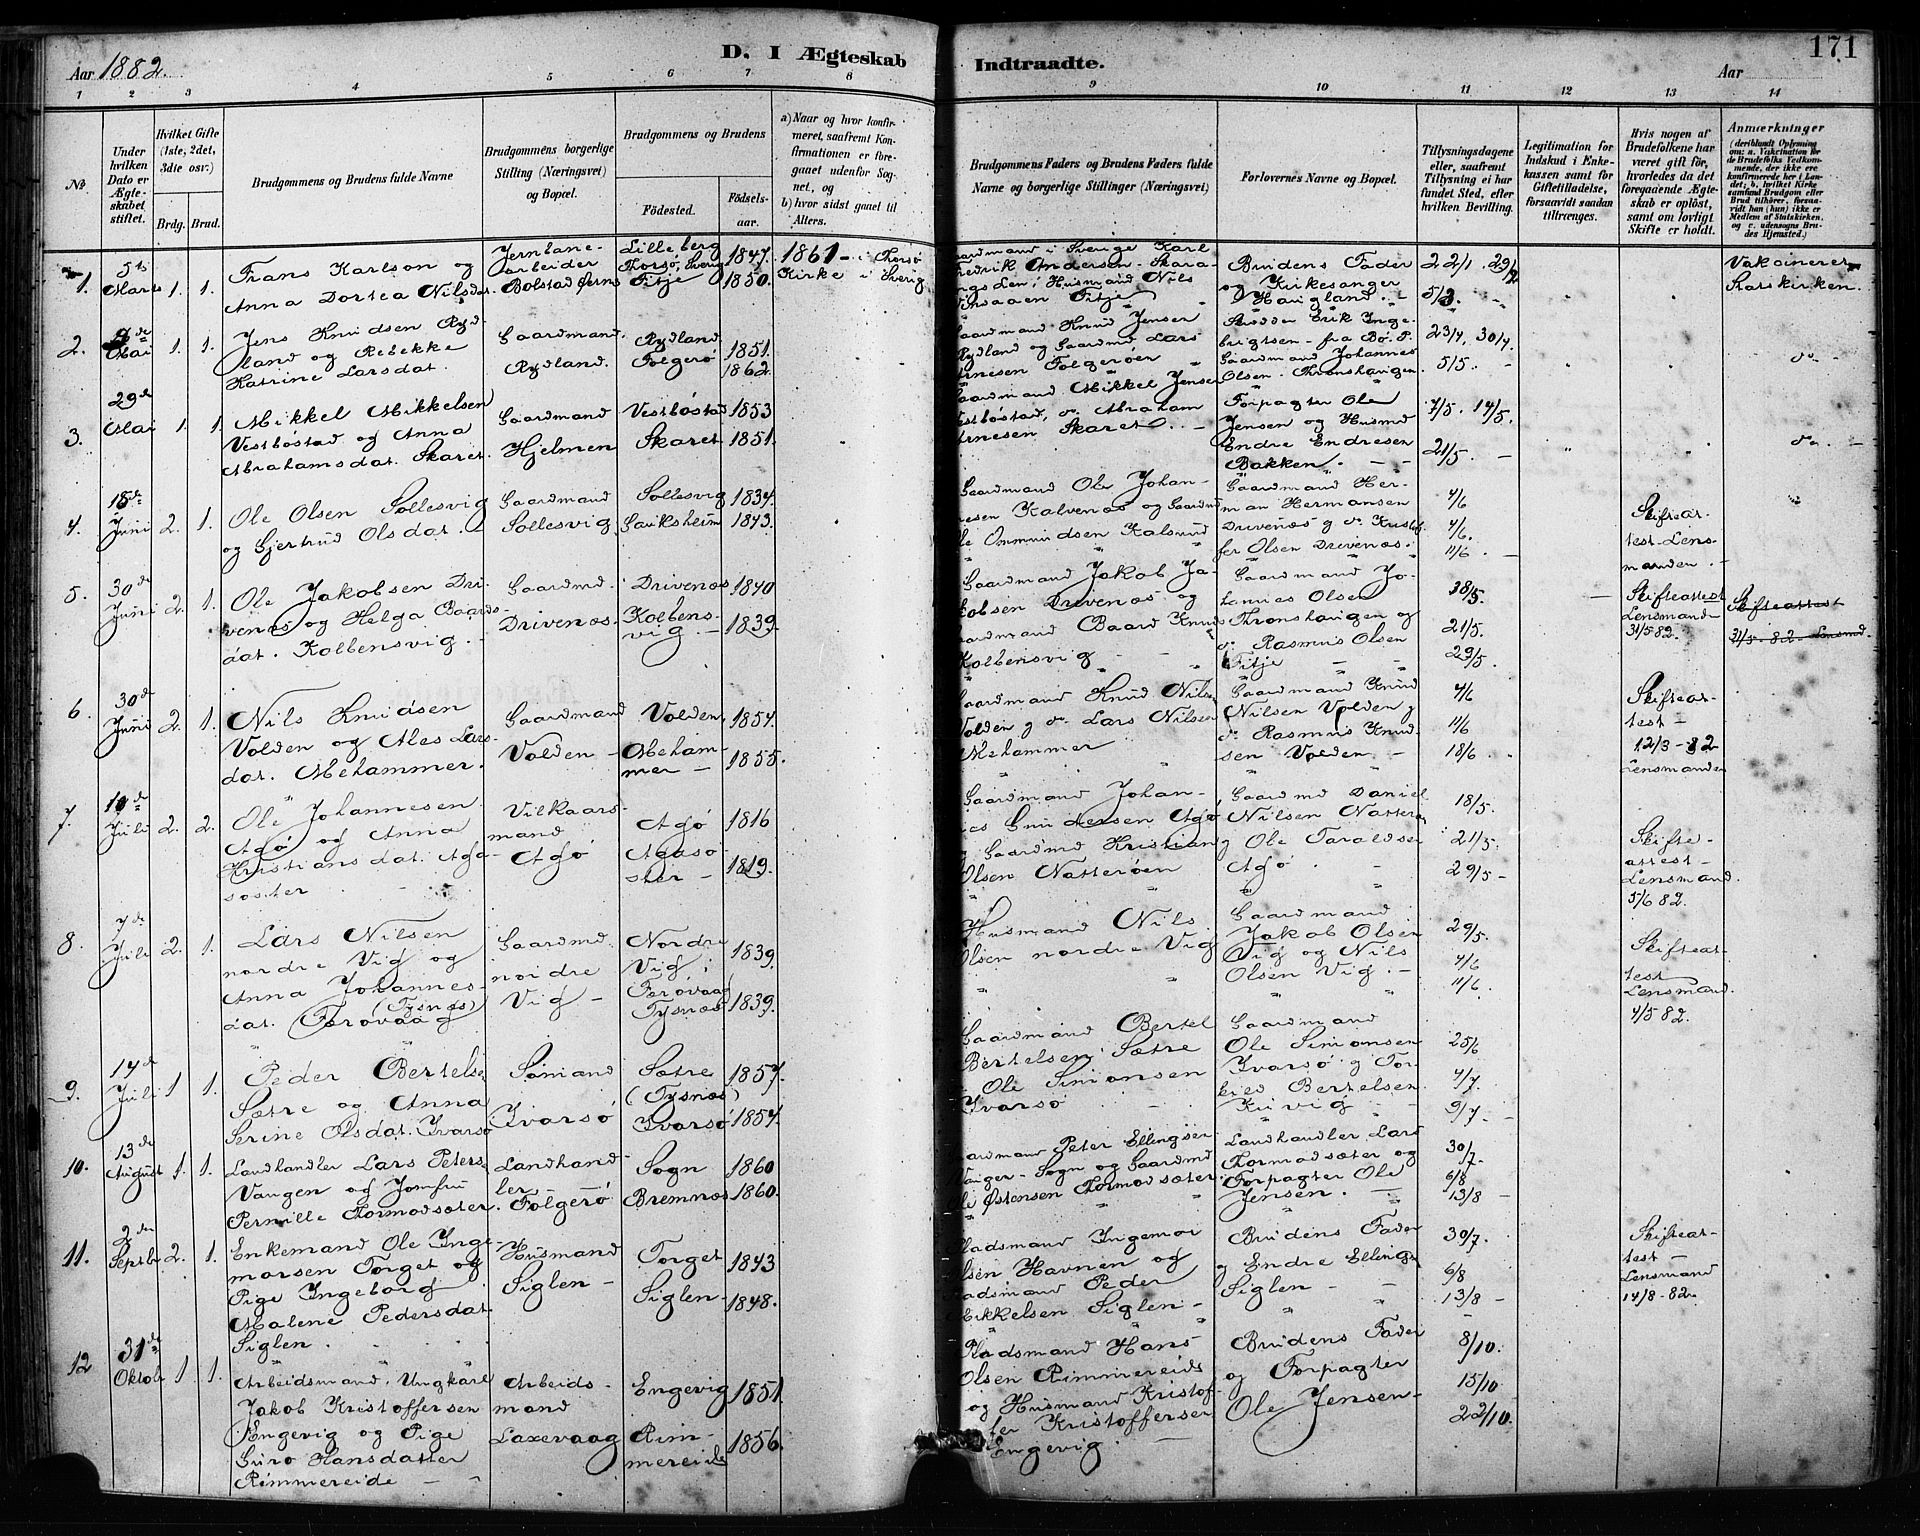 Aar 1882.
D. I Ægteskab
Indtraadte.
Aar
171
1 2 3 4 5 6 7 8 9 10 11 12 13 14
No.
Under hvilken Dato er Ægteskabet stiftet.
Hvilket Gifte (1ste, 2det, 3die osv.)
Brdg. Brud.
Brudgommens og Brudens fulde Navne
Brudgommens borgerlige Stilling (Næringsvei) og Bopæl.
Brudgommens og Brudens
Fødested. Fødselsaar.
a) Naar og hvor konfirmeret, saafremt Konfirmationen er foregaaet udenfor Sognet, og
b) hvor sidst gaaet til Alters.
Brudgommens Faders og Brudens Faders fulde Navne og borgerlige Stillinger (Næringsvei)
Forlovernes Navne og Bopæl.
Tillysningsdagene eller, saafremt Tillysning ei har fundet Sted, efter hvilken Bevilling.
Legitimation for Indskud i Enkekassen samt for Giftetilladelse, forsaavidt saadan tiltrænges.
Hvis nogen af Brudefolkene har været gift før, hvorledes da det foregaaende Ægteskab er opløst, samt om lovligt Skifte er holdt.
Anmærkninger
(deriblandt Oplysning om: a. Vakcination for de Brudefolks Vedkommende, der ikke ere konfirmerede her i Landet; b. hvilket Kirkesamfund Brudgom eller Brud tilhører, forsaavidt han (hun) ikke er Medlem af Statskirken, og c. udensogns Brudes Hjemsted.)
1. 5te Marts 1. 1.
Frans Karlson og
Anna Dortea Nilsdat.
Jernbanearbeider
Bolstadøren
Lilleberg Thorsø, Sverig 1847.
Fitje 1850.
1861 - i Thorsø Kirke i Sverig
Gaardmand i Sverige Karl
Fredrik Andersen - Skara-
Husmand Nils
Fitje
Brudens Fader
og Kirkesanger
Haugland.
22/1. 29/1
5/2.
Vakcineret
Statskirken.
2. Mai 1. 1.
Jens Knudsen Ryd-
land og Rebekke
Katrine Larsdat.
Gaardmand
Rydland.
Rydland 1851.
Folgerø 1862.
Gaardmand Knud Jensen
Rydland og Gaardmd Lars
Arnesen Folgerøen
Skrædder Erik Inge-
brigtsen - fra Bø. P.
Gaardmand Johannes
Olsen. Thronshaugen
23/4. 30/4.
5/5.
do
3. 29de Mai 1. 1.
Mikkel Mikkelsen
Vestbøstad og Anna
Abrahamsdat. Skaret.
Gaardmand
Hjelmen
Vestbøstad 1853
Skaret 1851.
Gaardmand Mikkel Jensen
Vestbøstad, do. Abraham
Arnesen Skaret.
Forpagter Ole
Jensen og Husmd
Endre Endresen
Bakken.
7/5. 14/5.
21/5.
do
4. 18de Juni 2. 1.
Ole Olsen Sollesvig
og Gjertrud Olsdat.
Gaardmand
Sollesvig
Sollesvig 1834.
Sauksheim 1843.
Gaardmand Ole Johan-
nesen Kalvenæs og Gaardmd
Ole Ommundsen Kalsund
Gaardmand Her-
man Hermansen
Drivenæs og do. Kristof-
fer Olsen Drivenæs.
4/6
4/6.
11/6.
Skifteat-
test - Lens-
manden.
5. 30de Juni 2. 1.
Ole Jakobsen Dri-
venæs og Helga Baards-
dat. Kolbensvig.
Gaardmd.
Drivenæs.
Drivenæs 1840
Kolbens-
vig. 1839.
Gaardmand Jakob Ja-
kobsen Drivenæs og
Gaardmand Baard Knud
Kolbensvig
Gaardmand Jo-
hannes Olsen
Thronshaugen og
do. Rasmus Olsen
Fitje
21/5.
29/5.
Skifteattest
Lensmand
31/5 82.
Skifteattest
31/5 - 82. Lensmd.
6. 30de Juni 2. 1.
Nils Knudsen
Volden og Ales Lars-
dat. Mehammer.
Gaardmand
Volden
Volden 1854.
Meham-
mer 1855.
Gaardmand Knud Nilsen
Volden og do. Lars Nilsen
Mehammer
Gaardmand Knud
Nilsen Volden og
do. Rasmus Knud-
sen Volden
4/6
11/6
18/6
Skifteat-
test -
12/3 - 82
Lensmanden
7. Juli 2. 2.
Ole Johannesen
Agø og Anna
Kristiansdat. Aga-
søster
Vilkaars-
mand
Agø
Agø 1816
Agasø-
ster 1819.
Gaardmand Johan-
nes Gundersen Agø
og Gaardmd Kristian
Olsen Natterøen
Gaardmd Daniel
Nilsen Natterøen
og Ole Taraldsen
Agø
18/5.
21/5.
29/5
Skifte-
attest -
Lensmand.
5/6 82.
8. 7de Juli 2. 1.
Lars Nilsen
nordre Vig og
Anna Johannes-
dat. (Tysnes)
Færøvaag
Gaardmd.
nordre
Vig
Nordre
Vig 1839.
Færøvaag
Tysnæs 1839.
Husmand Nils
Olsen nordre Vig
Gaardmand
Jakob Olsen
Vig og Nils
Olsen Vig.
29/5.
4/6
11/6
Skifteat-
test
Lensmand.
4/5 82.
9. 14de Juli 1. 1.
Peder Bertels.
Sætre og Anna
Serine Olsdat. Ivarsø
Sømand
Ivarsø
Sætre 1857.
(Tysnæs)
Ivarsø 1857.
Gaardmand Bertel
Bertelsen Sætre
Ole Simonsen
Ivarsø
Gaardmand
Ole Simonsen
Ivarsø og Tor-
Bertelsen
25/6
4/7
9/7
10. 13de August 1. 1.
Landhandler Lars Peters.
Vangen og Jomfru
Pernille Tormodsæter.
Landhand-
ler
Folgerø
Sogn 1860
Bremnæs 1860.
Gaardmand Peter Ellingsen
Vangen - Sogn og Gaardmd
Ole Østensen Tormodsæter.
Landhandler Lars
Tormodsæter og
Forpagter Ole
Jensen.
30/7.
6/8
13/8
11. 2den Septbr 2. 1.
Enkemand Ole Inge-
morsen Torget og
Pige Ingeborg
Malene Pedersdat.
Siglen.
Husmand
Siglen
Torget 1843
Siglen 1848.
Pladsmand Ingemor
Olsen Havnen og
Pladsmand Peder
Mikkelsen Siglen
Brudens Fader
og Endre Ellings.
Siglen
30/7.
6/8
13/8
Skifteat-
test -
Lensmand
14/8 - 82.
12 31de Oktob 1. 1.
Arbeidsmand, Ungkarl
Jakob Kristoffersen
Engevig og Pige
Guro Hansdatter
Rimmereide
Arbeids-
mand
Laxevaag
Engevig 1851.
Rim-
mereide 1856.
Pladsmand Hans
Olsen Rimmereide
og Husmand Kristof-
fer Kristoffersen
Engevig.
Brudens Fader
og Forpagter
Ole Jensen
8/10.
15/10.
22/10.